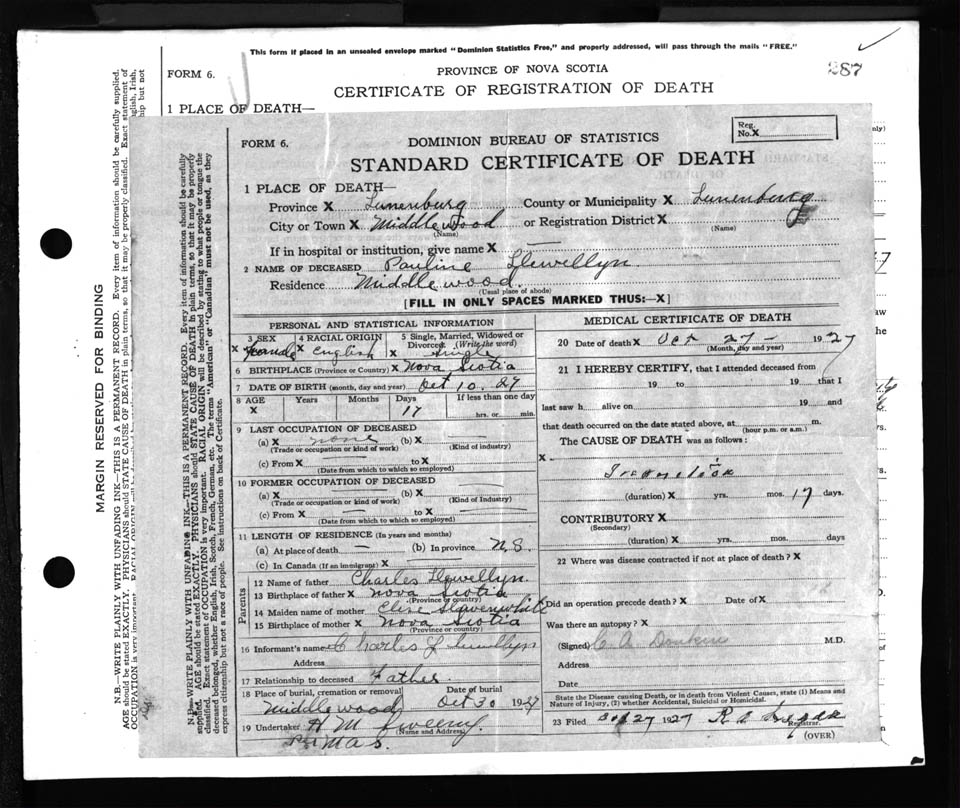 This form if placed in an unsealed envelope marked "Dominion Statistics Free," and properly addressed, will pass through the mails "FREE."
287
FORM 6.
PROVINCE OF NOVA SCOTIA
CERTIFICATE OF REGISTRATION OF DEATH
1 PLACE OF DEATH—
MARGIN RESERVED FOR BINDING
N.B.—WRITE PLAINLY WITH UNFADING INK—THIS IS A PERMANENT RECORD. Every item of information should be carefully supplied.
AGE should be stated EXACTLY. PHYSICIANS should STATE CAUSE OF DEATH in plain terms, so that it may be properly classified. Exact statement of
N.B.—WRITE PLAINLY WITH UNFADING INK—THIS IS A PERMANENT RECORD. Every item of information should be carefully
supplied. AGE should be stated EXACTLY. PHYSICIANS should STATE CAUSE OF DEATH in plain terms, so that it may be properly
classified. Exact statement of OCCUPATION is very important. RACIAL ORIGIN will be described by stating to what people or tongue the
deceased belonged, whether English, Irish, Scotch, French, German, etc. The terms "American" or "Canadian" must not be used, as they
express citizenship but not a race of people. See instructions on back of Certificate.
FORM 6.
DOMINION BUREAU OF STATISTICS
Reg. No. X
STANDARD CERTIFICATE OF DEATH
1 PLACE OF DEATH—
Province X Lunenburg County or Municipality X Lunenburg
City or Town X Middlewood or Registration District X
(Name) (Name)
If in hospital or institution, give name X —
2 NAME OF DECEASED Pauline Llewellyn
Residence Middlewood.
(Usual place of abode)
[FILL IN ONLY SPACES MARKED THUS:—X]
PERSONAL AND STATISTICAL INFORMATION
3 SEX 4 RACIAL ORIGIN 5 Single, Married, Widowed or Divorced. (Write the word)
X Female X English X Single
6 BIRTHPLACE (Province or Country) X Nova Scotia
7 DATE OF BIRTH (month, day and year) Oct 10. 27
8 AGE Years Months Days If less than one day
X 17 hrs. or min.
9 LAST OCCUPATION OF DECEASED
(a) X none (b) X —
(Trade or occupation or kind of work) (Kind of industry)
(c) From X — to X —
(Date from which to which so employed)
10 FORMER OCCUPATION OF DECEASED
(a) X — (b) X —
(Trade or occupation or kind of work) (Kind of Industry)
(c) From X — to X —
(Date from which to which so employed)
11 LENGTH OF RESIDENCE (In years and months)
(a) At place of death — (b) In province N.S.
(c) In Canada (If an immigrant) X —
Parents
12 Name of father Charles Llewellyn
13 Birthplace of father X Nova Scotia
(Province or country)
14 Maiden name of mother Elise
15 Birthplace of mother X Nova Scotia
(Province or country)
16 Informant's name Charles Llewellyn
Address
17 Relationship to deceased Father
18 Place of burial, cremation or removal Date of burial
Middlewood Oct 30 1927
19 Undertaker H M Sweeny
(Name and Address)
MEDICAL CERTIFICATE OF DEATH
20 Date of death X Oct 27 — 1927
(Month, day and year)
21 I HEREBY CERTIFY, that I attended deceased from
19 to 19 that I
last saw h alive on 19 and
that death occurred on the date stated above, at m.
(hour p.m. or a.m.)
The CAUSE OF DEATH was as follows:
X
(duration) X yrs. mos. 17 days.
CONTRIBUTORY X
(Secondary)
(duration) X yrs. mos. days
22 Where was disease contracted if not at place of death? X
Did an operation precede death? X Date of X
Was there an autopsy? X
(Signed) C A Donkin M.D.
Address
Date
State the Disease causing Death, or in death from Violent Causes, state (1) Means and Nature of Injury, (2) whether Accidental, Suicidal or Homicidal.
23 Filed Oct 27 1927
Registrar.
(OVER)